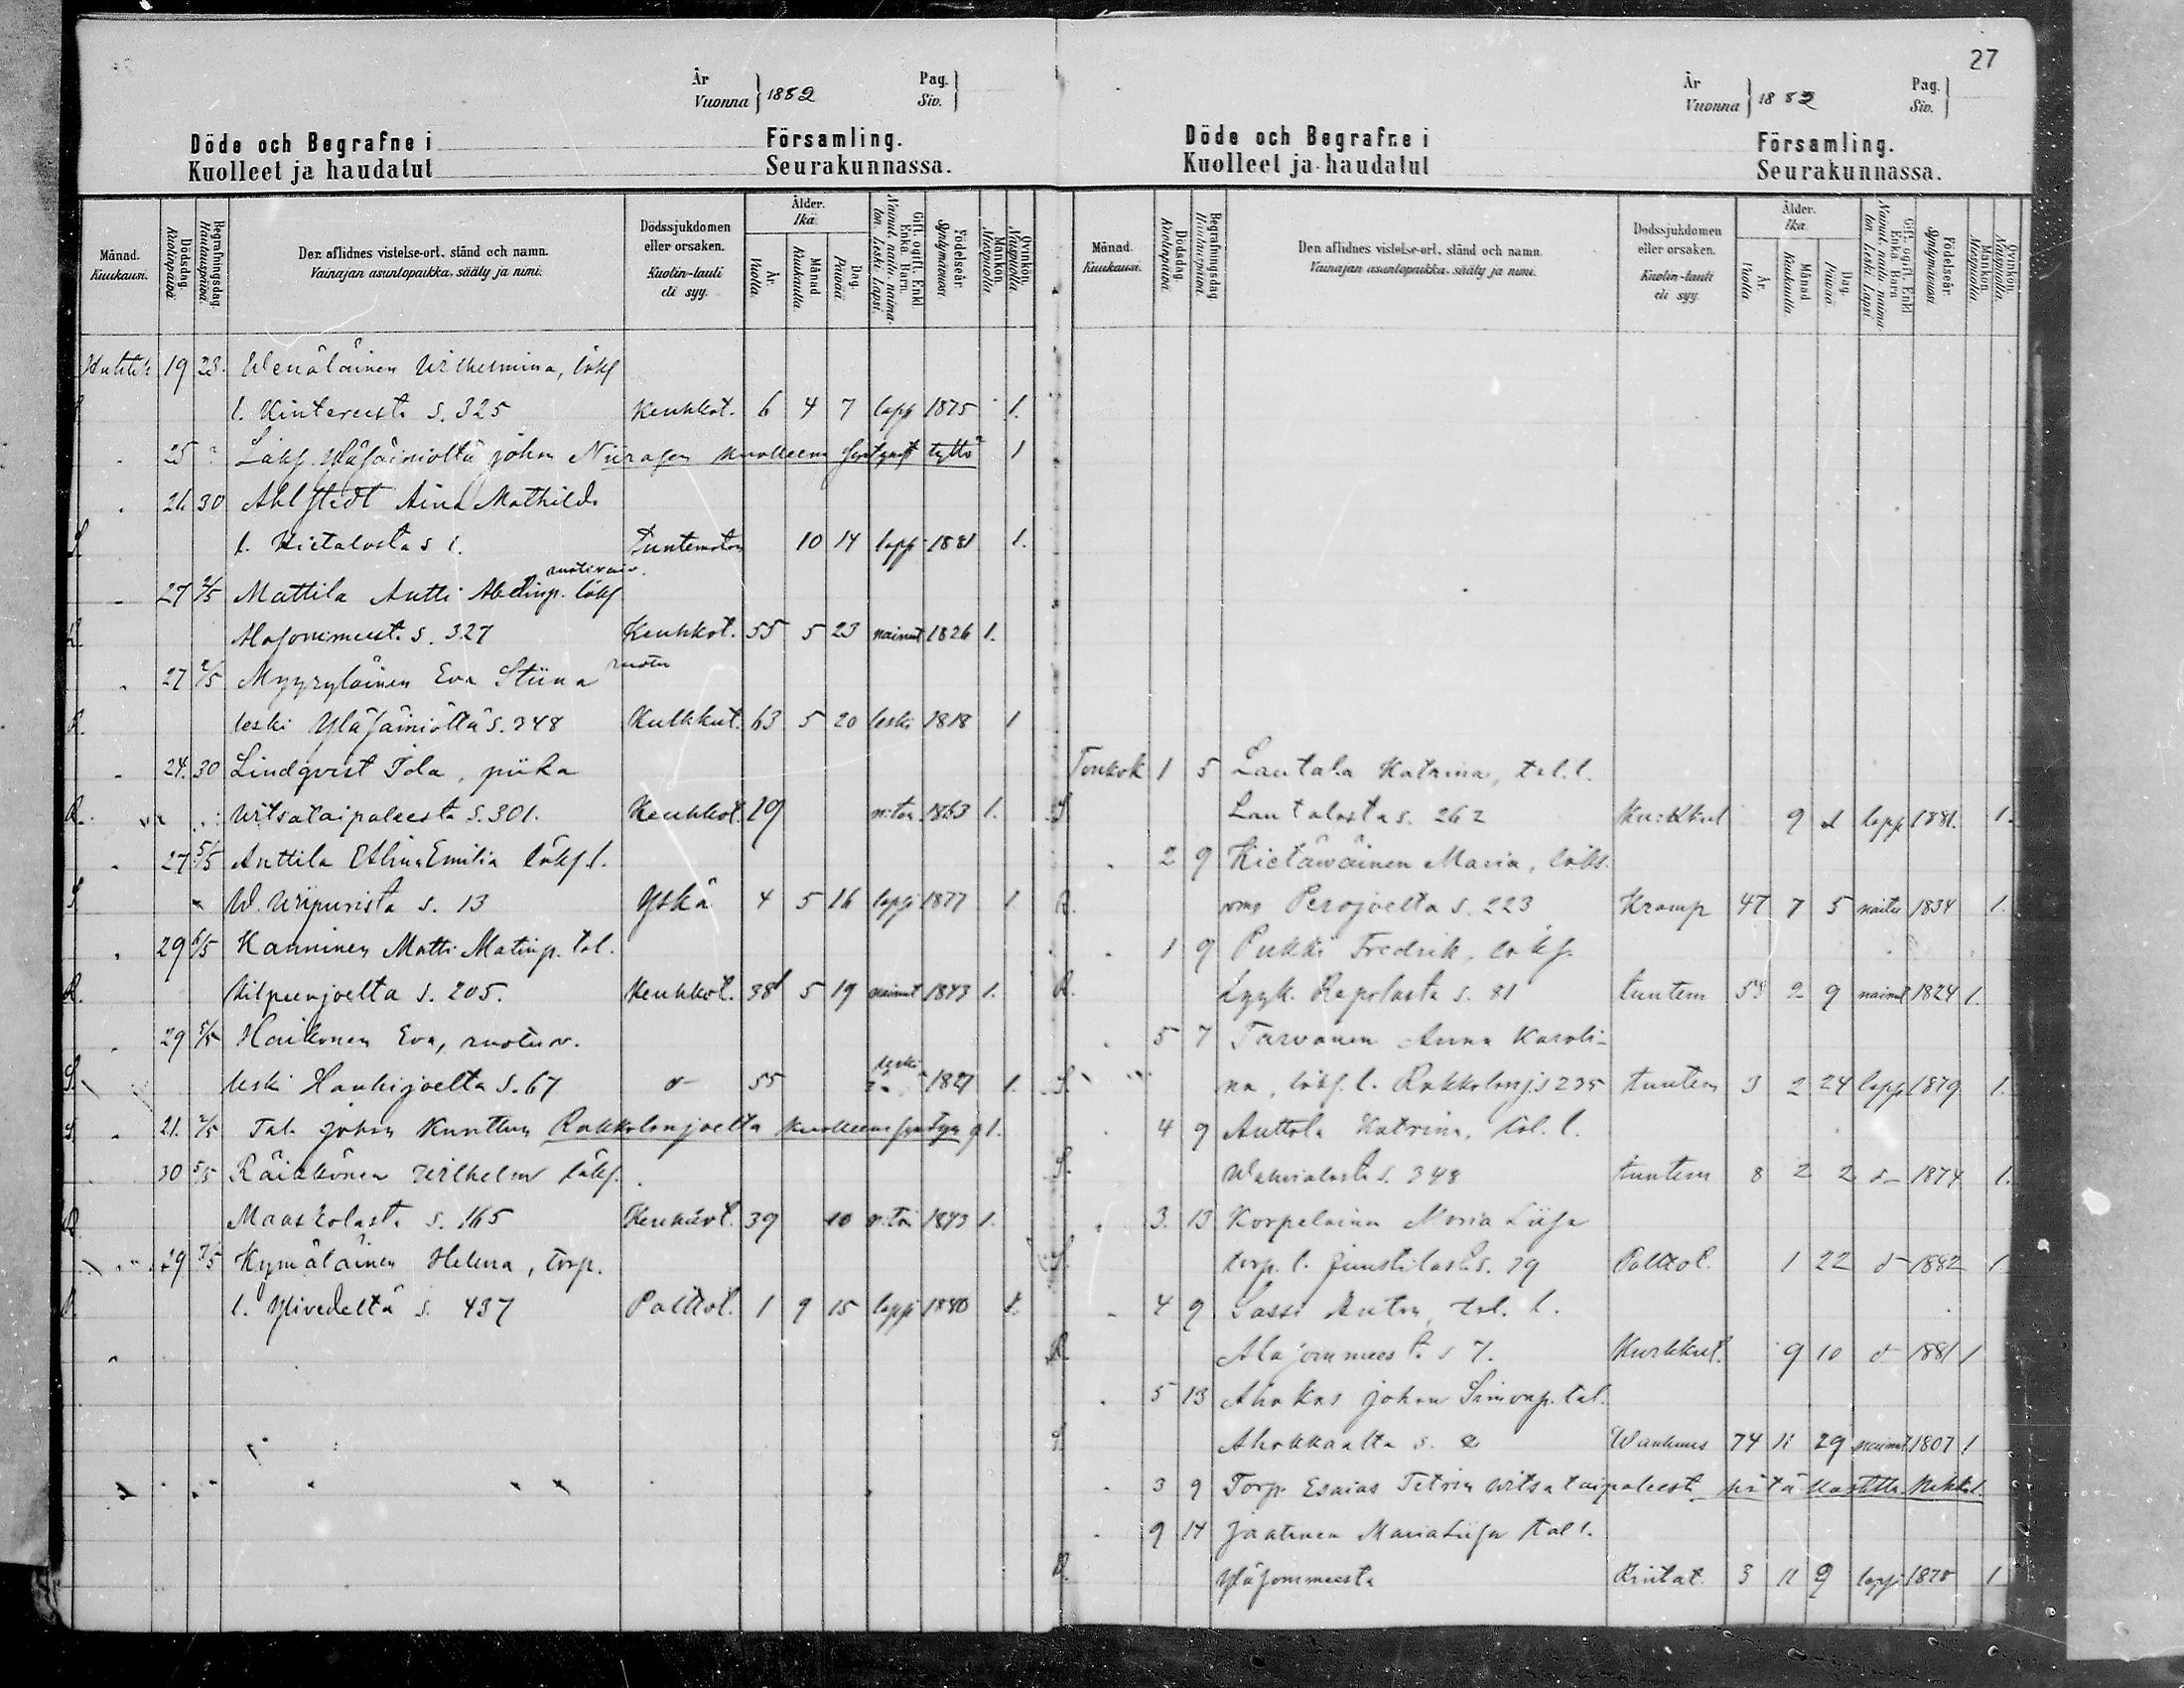 År
Vuonna } 1882
Pag.
Siv. }
Döde och Begrafne i Församling.
Kuolleet ja haudatut Seurakunnassa.
Månad.
Kuukausi.
Dödsdag.
Kuolinpäivä.
Begrafningsdag.
Hautauspäivä.
Den aflidnes vistelse-ort, stånd och namn.
Vainajan asuntopaikka, sääty ja nimi.
Dödssjukdomen eller orsaken.
Kuolin-tauti eli syy.
Ålder.
Ikä.
År.
Vuotta.
Månad
Kuukautta
Dag.
Päivää
Gift, ogift, Enkl. Enka, Barn.
Nainut, naitu, naimaton, Leski, Lapsi.
Födelseår.
Syntymävuosi.
Mankön.
Miespuolia.
Qvinkön.
Naispuolia.
Huhtik 19 23. Wenäläinen Wilhelmina, löks
l. Kintereestä s. 325 Keuhkot. 6 4 7 laps 1875 1.
25 Löks. Yläsäiniöltä John kuolleena tyttö 1
26 30 Ahlstedt Aina Mathilda
S l. Hietalasta s 1. Tuntematon 10 14 laps 1881 1.
27 2/5 Mattila Antti Abelinp. löks
s. 327 Keuhkot. 55 5 23 nainut 1826 1.
27 2/5 Myyryläinen Eva Stiina ruotu
R. leski Yläsäiniöltä s. 348 Kulkkut. 63 5 20 leski 1818 1
24. 30 Lindqvist piika
R. Witsataipaleesta s. 301. Keuhkot. 19 n:ton 1863 1.
27 5/5 Anttila Emilia löks. l.
S. W. Wiipurista s. 13 Yskä 4 5 16 laps 1877 1
29 6/5 Kanninen Matti Matinp. tal.
R. Kilpeenjoelta s. 205. Keuhkot. 38 5 19 nainut 1843 1.
29 5/5 Haikonen Eva, ruotu v.
S. leski Hanhijoelta s. 67 d- 55 leski 1827 1.
S. 21. Tal. Johan Kunttun Rakkolanjoelta kuolleena 1.
30 5/5 Räikkönen Wilhelm löks.
R Maaskolasta s. 165 Keuhkot. 39 10 n:ton 1843 1.
29 7/5 Kymäläinen Helena, torp.
R. l. Ylivedeltä s. 437 Polttot. 1 9 15 laps 1880 1.
27
År
Vuonna } 1882
Pag.
Siv. }
Döde och Begrafne i Församling.
Kuolleet ja haudatut Seurakunnassa.
Månad.
Kuukausi.
Dödsdag.
Kuolinpäivä.
Begrafningsdag
Hautauspäivä.
Den aflidnes vistelse-ort, stånd och namn.
Vainajan asuntopaikka, sääty ja nimi.
Dödssjukdomen eller orsaken.
Kuolin-tauti eli syy.
Ålder.
Ikä.
År.
Vuotta.
Månad
Kuukautta
Dag.
Päivää.
Gift, ogift, Enkl. Enka, Barn
Nainut, naitu, naimaton, Leski, Lapsi.
Födelseår.
Syntymävuosi.
Mankön.
Miespuolia.
Qvinkön.
Naispuolia.
Toukok 1 5 Lautala Katrina, tal. l.
S Lautalasta s. 262 Kurkkut 9 laps 1881. 1.
2 9 Hietäwäinen Maria, löks.
R. Perojoelta s. 223 Kramp 47 7 5 naitu 1834 1.
1 9 Pukki Fredrik, löks.
R. Lyyk. Rapolasta s. 81 tuntem 58 2 9 nainut 1824 1.
5 7 Tarvanen Anna Karoli-
S. na, löks. l. Rakkolanj. s 235 tuntem 3 2 24 laps 1879 1.
4 9 Anttola Katrina, tal. l.
S. s. 348 tuntem 8 2 2 d- 1874 1.
3. 13 Korpelainen Maria Liisa
S. torp. l. Juustilasta s. 79 Polttot. 1 22 d- 1882 1
4 9 Sassi Anton, tal. l.
R. Alasommeesta s 7. Kurkkut. 9 10 d- 1881 1
5 13 Ahokas Johan Simonp. tal.
S. Ahokkaalta s. 2 Wanhuus 74 11 29 nainut 1807 1
3 9 Torp. Esaias Tetrin Witsataipaleesta hätä kastettu 1
9 14 Jaatinen Maria Liisa tal l.
R. Yläsommeesta Rintat. 3 11 9 laps 1878 1